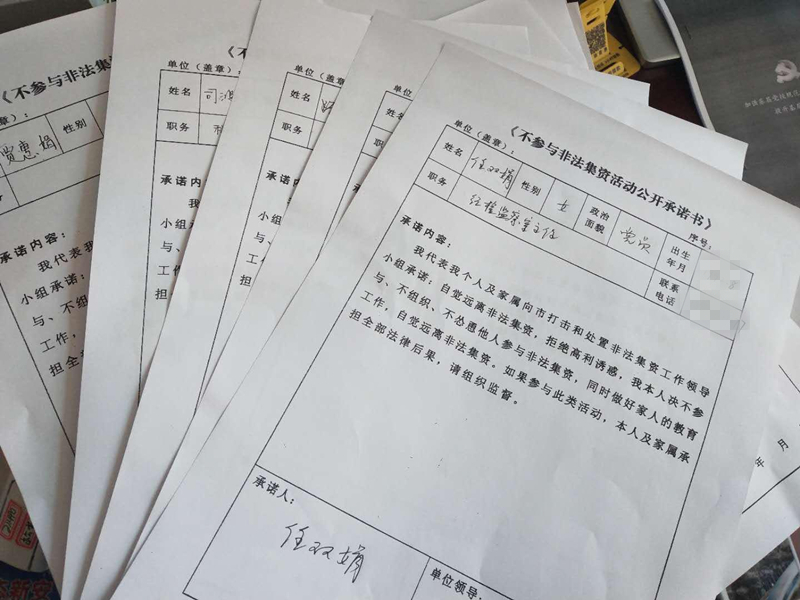 《不参与非法集资
章）：
贾惠娟
性别
承诺内容：
我代表我
小组承诺：
与、不组织
工作，
担
《
单位（盖章）：
姓名
职务
承诺内容
小组
与、
工作
担
《
单位（盖章）：
姓名
职务
承诺
《
单位（
《不参与非法集资活动公开承诺书》
单位（盖章）：
序号：
姓名
任双娟
性别
女
政治面貌
党员
出生年月
职务
纪检监察室主任
联系电话
承诺内容：
我代表我个人及家属向市打击和处置非法集资工作领导
小组承诺：自觉远离非法集资，拒绝高利诱惑，我本人决不参
与、不组织、不怂恿他人参与非法集资，同时做好家人的教育
工作，自觉远离非法集资。如果参与此类活动，本人及家属承
担全部法律后果，请组织监督。
承诺人：
任双娟
单位领导：
年 月